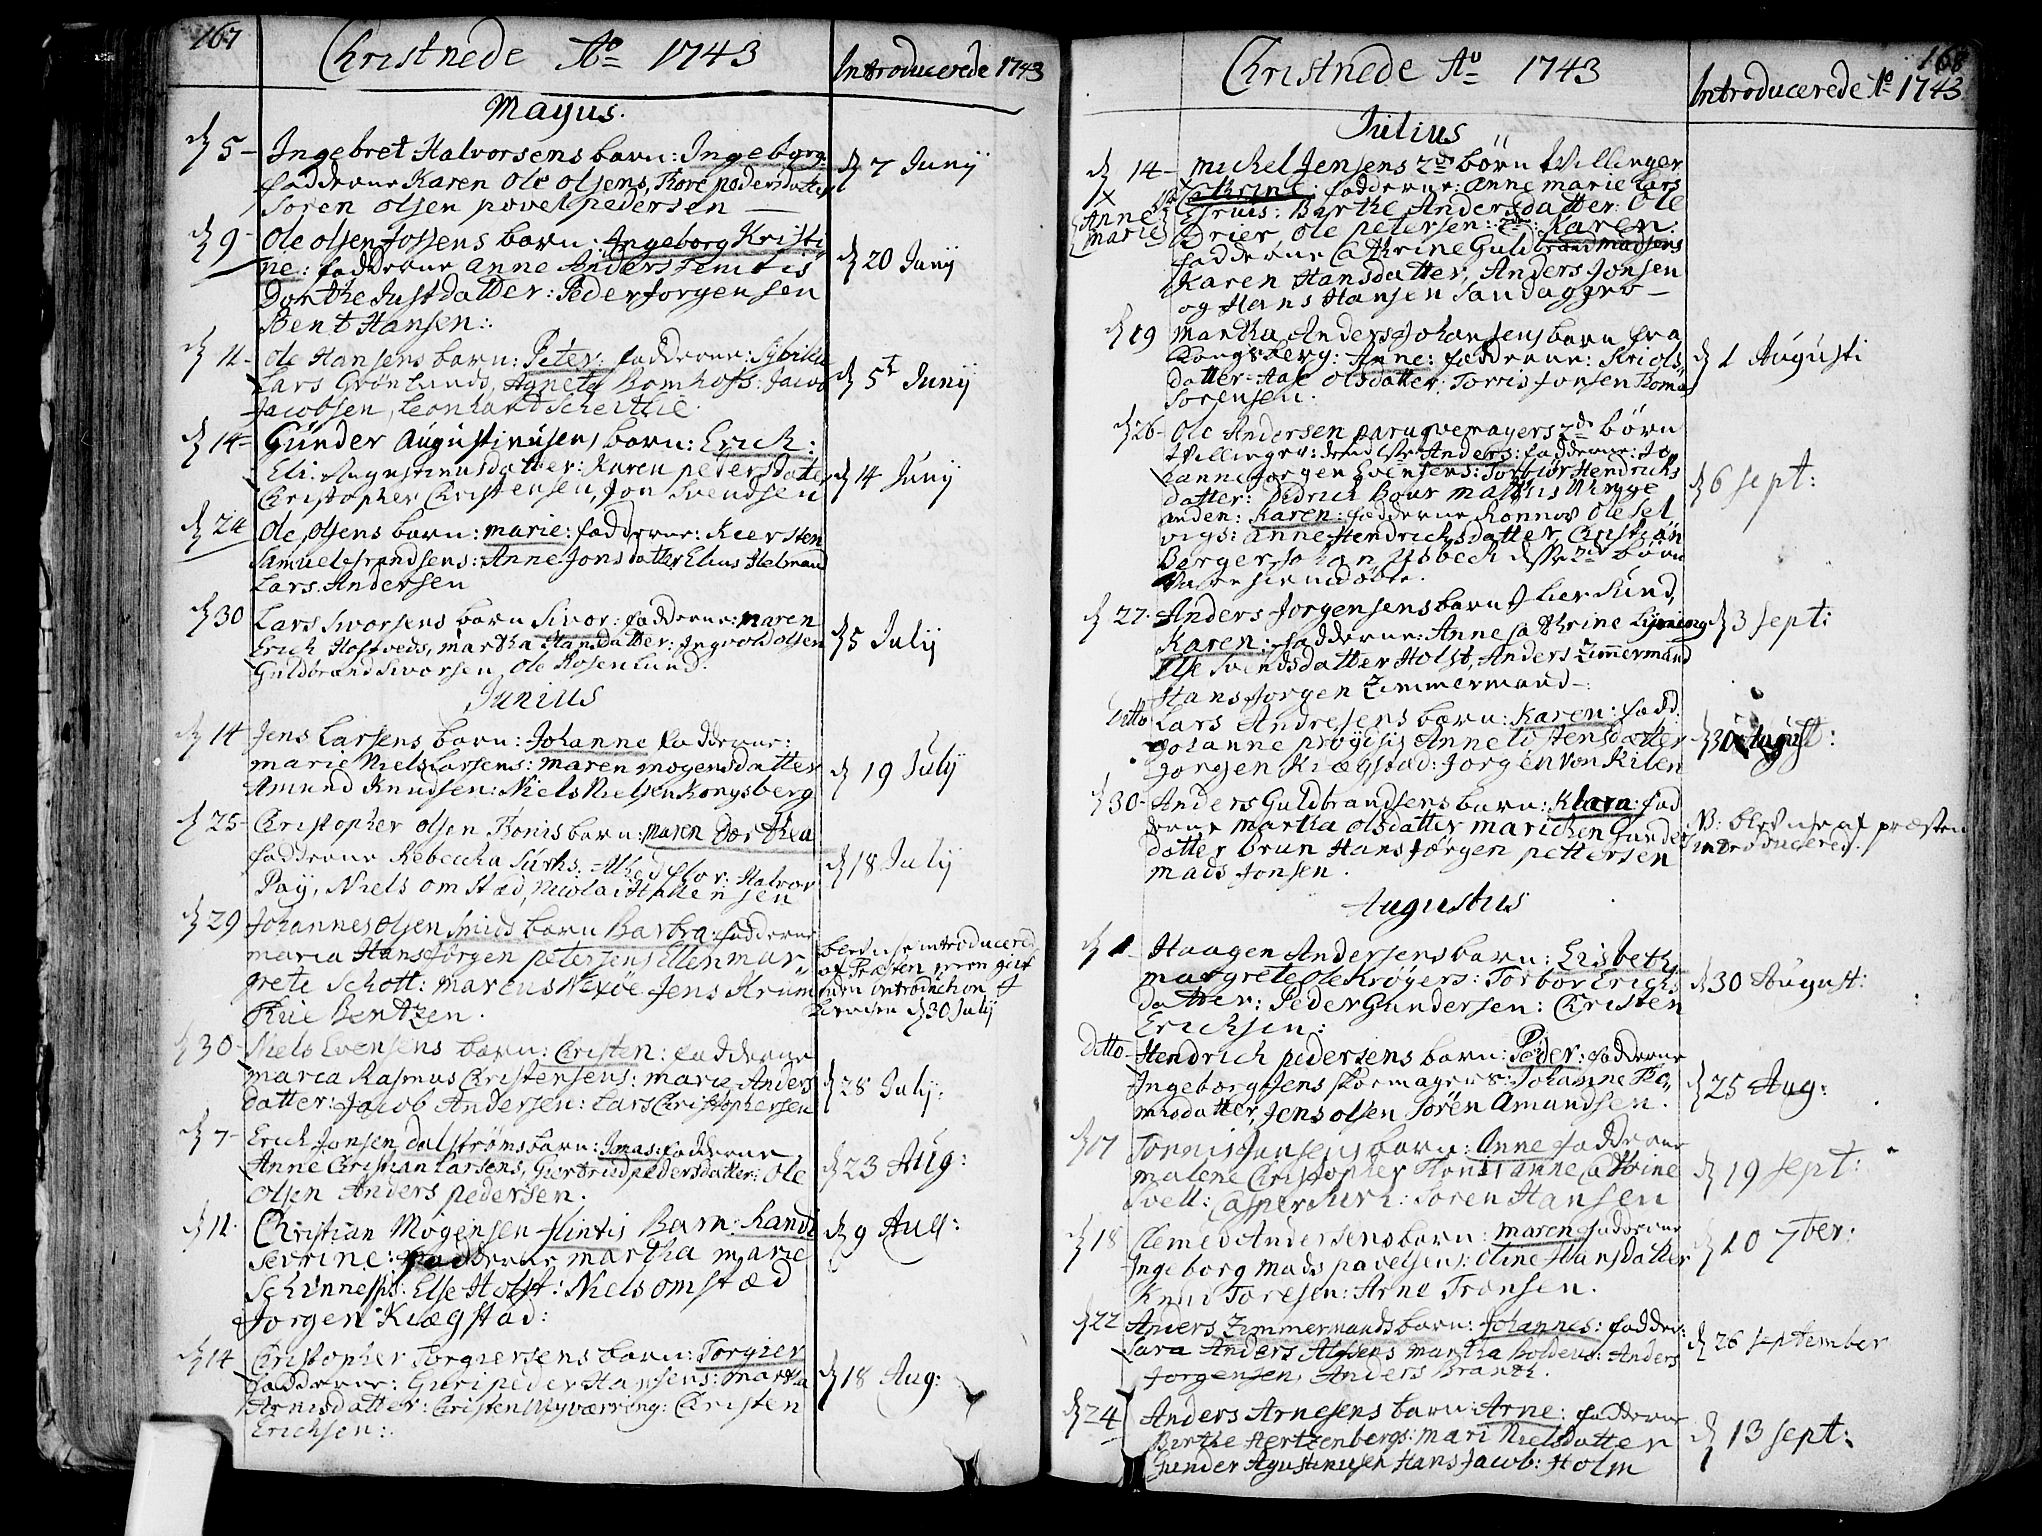 167
Christnede Ao 1743
Introducerede 1743
Mayus.
d 5 - Ingebret Halvorsens barn: Ingeborg:
fadderne Karen Ole Olsens, Tore pedersdatter
Søren olsen povel pedersen —
d 7 Junij
d 9 - Ole olsen Jossens barn: Ingeborg Kristi
ne: fadderne anne Anders
Dorthe Justdatter: Peder Jorgensen
Bent Hansen:.
d 20 Junij
d 11 - Ole Hansens barn: Peter: fadderne: Sybille
Lars Grønlunds, Agnete Bomhofs: Jacob
Jacobsen, Leonhart Scheitlie.
d 5t Junij
d 14 - Günder Augustinusens barn: Erick:
Eli Augustinusdatter: Karen petersdatter
Christopher Christensen, Jon Svendsen
d 14 Junij
d 24 Ole olsens barn: marie: fadderne: Keersten
Samuel: Anne Jonsdatter, Elias Helmand
Lars Andersen
d 30 Lars Sivorsens barn Sivor: fadderne: maren
Erich Hoftveds, martha Hansdatter: Ingvold olsen
Guldbrand Sivorsen, Ole Rosenlund.
d 5 Julij
Junius
d 14 Jens Larsens barn: Johanne fadderne:
marie Niels Larsens: maren mogensdatter
Amund Knudsen: Niels Nielsen Kongsberg
d 19 Julij
d 25 - Christopher olsen Tonis barn: maren Dorthea
fadderne Rebeccha : Halvor
Pay, Niels omstad, Nicolai Hallensen
d 18 Julij
d 29 Johannes olsen Smids barn Barbra: fadderne
maria Hans Jørgen petersens Ellen mar
grete Schott: marcus Nexøe Jens Krum
Thue Bentzen.
blev ej introduceret
af Præsten men gik
uden introduction i
Kirchen d 30 Julij
d 30 - Niels Evensens barn: Christen: fadderne
maria Rasmus Christensens: marie Anders
datter: Jacob Andersen: Lars Christophersen
d 28 Julij:
d 7 - Erich Jonsen dalstrøms barn: Jonas: fadderne
Anne Christian Larsens, Giertrud pedersdatter: Ole
olsen Anders pedersen.
d 23 Aug:
d 11 - Christian Mogensen flintis Barn: Randi
Serrine: fadderne martha marie
: Else Holst: Niels omstæd
Jørgen Kiægstad:
d 9 Aug:
d 14 Christopher Torgiersens barn: Torgier
fadderne: Guri peder Hansens: martha
Arnisdatter: Christen Nyværring: Christen
Erichsen:.
d 18 Aug:
168
Christnede Ao 1743
Introducerede Ao 1743
Julius
d 14 - Michel Jensens 2de børn tvillinger
Cathrine: fadderne: anne marie Lars
Anne marie
: Birthe Andersdatter: Ole
Drier, Ole petersen: 2de: Karen:
fadderne Cathrine Guldbrand madsens
Karen Hansdatter, Anders Jonsen
og Hans Hansen Sandaggro —
d 19 Martha Anders Johansens barn fra
Kongsberg: Anne: fadderne: Kriols
datter: Aase olsdatter: Torris Jonsen Tomas
Sørensen.
d 1 Augusti
d 26 - Ole Andersen paruqvemagers 2de børn
tvillinger: den første Anders: fadderne: Jo
hanne Jørgen Evensens: Torbiør Hendrichs
datter: Didrich Bour mathis Rhyge
anden: Karen: fadderne Ronnov Ole Sel
vigs: anne Hendrichsdatter, Christian
Berger, Johan Usbech disse 2de børn
vare hiemdøbte.
d 6 sept:
d 27 - Anders Jorgensens barn f Lier Sund,
Karen: fadderne: Anne Cathrine Lyning
Else Svendsdatter Holst, Anders Zimmermand
Hans Jorgen Zimmermand —
d 3 sept:
Ditto Lars Andresens barn: Karen: fadd:
Johanne prøysis Anne tostensdatter
Jorgen Kiægstad: Jorgen von Kilen
d 30 August:
d 30 - Anders Guldbrandsens barn: Klara: fad
derne martha olsdatter marichen Gunders
datter brun Hans Jørgen pettersen
mads Jonsen.
NB: blev ej af præsten
introduceret.
Augustus
d 1 - Haagen Andersens barn: Lisbeth:
margrete Ole Krøyers: Torbor Erichs
datter: Peder Gundersen: Christen
Erichsen:
d 30 August:
Ditto Hendrich pedersens barn: Peder: fadderne
Ingeborg Jens skoemagers: Johanne To
masdatter, Jens olsen Søren Amundsen.
d 25 Aug:
d 17 Tønnis Jansens barn: Anne fadderne
malene Christopher Tonis anne Cathrine
Svell: Casper Kirk: Søren Hansen
d 19 sept:
d 18 Clemed Andersens barn: maren fadderne
Ingeborg mads pavelsens: oline Hansdatter
Knud Toresen: Arne Tronsen.
d 10 7ber:
d 22 Anders Zimmermands barn: Johannes: fadder:
Sara Anders Alfsens martha Boldens: Anders
Jorgensen, Anders Branth.
d 26 september
d 24 Anders Arnesens barn: Arne: fadderne
Birthe Hertzenbergs: Mari Nielsdatter
Gunder Agustinusen Hans Jacob: Holm
d 13 sept: